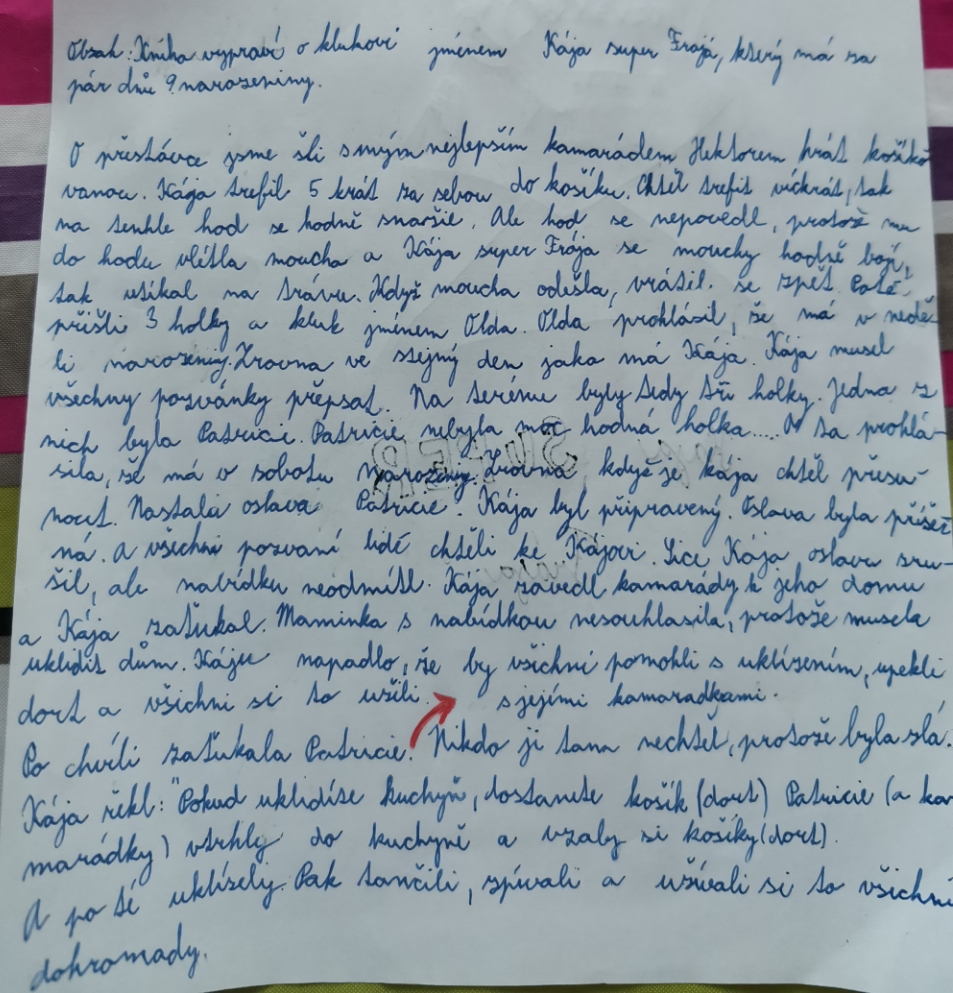 Obsah: Kniha vypraví o klukovi jménem Kája super Frájá, který má za
pár dnů 9. narozeniny.
O přestávce jsme šli s mým nejlepším kamarádem Hektorem hrát košíko
vanou. Kája trefil 5 krát za sebou do košíku. Chtěl trefit víckrát, tak
na tenhle hod se hodně snažil. Ale hod se nepovedl, protož mu
do hodu vlétla moucha a Kája super Frája se mouchy hodně bojí,
tak utíkal na trávu. Když moucha odešla, vrátil se zpět. Poté
přišli 3 holky a kluk jménem Olda. Olda prohlásil, že má v nedě-
li narozeniny. Zrovna ve stejný den jako má Kája. Kája musel
všechny pozvánky přepsat. Na terénu byly tedy tři holky. Jedna z
nich byla Patricie. Patricie nebyla moc hodná holka.... A ta prohlá-
sila, že má v sobotu narozeniny. Zrovna, když je kája chtěl přesu-
nout. Nastala oslava Patricie. Kája byl připravený. Oslava byla příšer
ná. a všechni pozvaní lidé chtěli ke Kájovi. Sice Kája oslavu zru-
šil, ale nabídku neodmítl. Kája zavedl kamarády k jeho domu
a Kája zaťukal. Maminka s nabídkou nesouhlasila, protože musela
uklidit dům. Káju napadlo, že by všichni pomohli s uklízením, upekli
dort a všichni si to užili. s jejími kamaradkami.
Po chvíli zaťukala Patricie. Nikdo ji tam nechtěl, protože byla zlá.
Kája řekl: "Pokud uklidíte kuchyň, dostanete košík (dort) Patricie (a ka
marádky) vtrhly do kuchyně a vzaly si košíky (dort).
A po té uklízely. Pak tančili, zpívali a užívali si to všichni
dohromady.